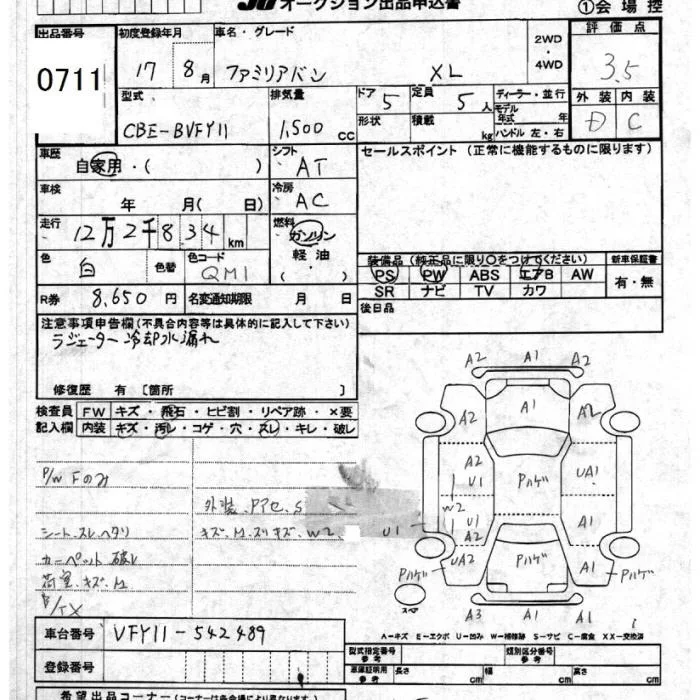 オークション出品申込書
①会場控
出品番号 初度登録年月 車名・グレード 評価点
0711 17 8月 ファミリアバン XL 2WD ・ 4WD 3.5
型式 排気量 ドア 定員 ディーラー・並行 外装 内装
CBE-BVFY11 1,500 cc 5 5人 モデル年式 年 D C
形状 積載 kg ハンドル 左・右
車歴 自家用・( ) シフト AT セールスポイント (正常に機能するものに限ります)
車検 年 月( 日) 冷房 AC
走行 12万2千834 km 燃料 ガソリン 軽油 ・( )
色 白 色替 色コード QM1
装備品 (純正品に限り○をつけてください) 新車保証書
PS PW ABS エアB AW 有・無
SR ナビ TV カワ
R券 8,650円 名変通知期限 月 日 後日品
注意事項申告欄(不具合内容等は具体的に記入して下さい)
ラジエーター 冷却水漏れ
修復歴 有 [箇所 ]
検査員 FW キズ・飛石・ヒビ割・リペア跡・×要
記入欄 内装 キズ・汚レ・コゲ・穴・スレ・キレ・破レ
P/W Fのみ
外装.Pアセ.S
シート.スレ.ヘタリ キズ.M.スリキズ.W2
カーペット破レ
荷室.キズ.M
A2 A1 A2
A2 A1 A2
A2 U1 Pハゲ UA1
W2
U1 U1 A1
A2
Pハゲ UA2 Pハゲ A1 Pハゲ
スペア
A3 A1 A2
A-キズ E-エクボ U-凹み W-補修跡 S-サビ C-腐食 XX-交換済
車台番号 VFY11-542489
型式指定番号 参考 類別区分番号 参考
登録番号 車庫証明用 参考 長さ cm 幅 cm 高さ cm
希望出品コーナー